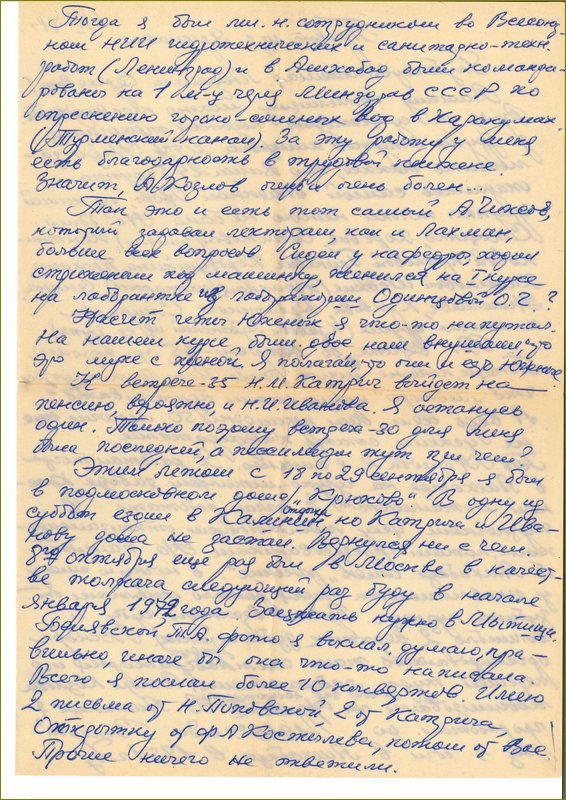 Тогда я был мл. н. сотрудником во Всесоюз-
ном НИИ гидротехнических и санитарно-техн.
работ (Ленинград) и в Ашхабад были командированы
рованы на 1 м-ц через Минздрав СССР по
опреснению горько-соленых вод в Каракумах
(Туркменский канал). За эту работу у меня
есть благодарность в трудовой книжке.
Значит, А. Козлов очень и очень болен...
Так это и есть тот самый А. Чихов,
который задавал лекторам, как и Лахман,
больше всех вопросов. Сидел у кафедры, ходил
стриженым под машинку, женился на I курсе
на лаборантке из лаборатории Одинцовой О.Г.?
Насчет четы Юхеник я что-то напутал.
На нашем курсе были двое нам внушали, что
это муж с женой. Я полагал, что они и есть
К встрече-35 Н.М. Катрич выйдет на
пенсию, вероятно, и Н.И. Иванова. Я останусь
один. Только поэтому встреча-30 для меня
была последней, а пессимизм тут при чем?
Этим летом с 18 по 29 сентября я был
в подмосковном доме отдыха "Крюково". В одну из
суббот ездил в Калинин, но Катрича и Ива-
нову дома не застал. Вернулся ни с чем.
8го октября еще раз был в Москве в качест-
ве толкача следующий раз буду в начале
января 1972 года. Заезжать нужно в Мытищи.
Т.А. фото я выслал, думаю, пра-
вильно, иначе бы она что-то написала.
Всего я послал более 10 конвертов. Имею
2 письма от Н. Поповской, 2 от Катрича,
Открытку от Ф.А. Костылева, потом от Вас
Прочие ничего не ответили.